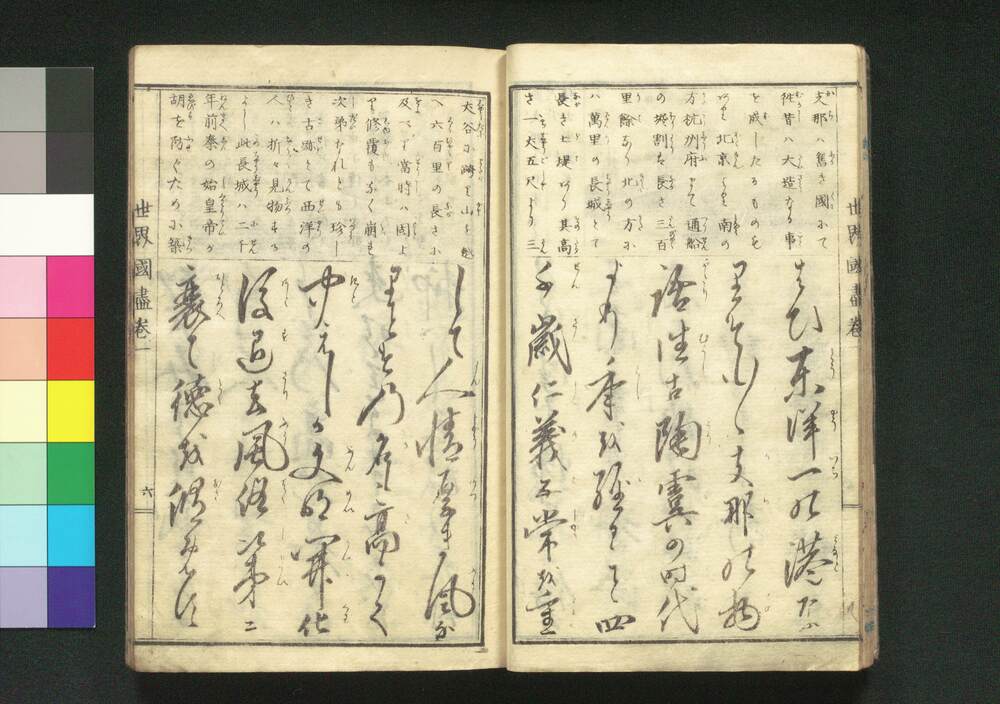 支那ハ舊き國にて
往昔ハ大造なる事
を成したるものを
北京より南の
方杭州府まて通船
の堀割を長さ三百
里餘あり北の方に
ハ萬里の長城とて
長き土堤あり其高
さ一丈五尺より三
東洋一の港
そも〳〵支那の物
語往古陶虞の時代
より年を經ること四
千歳仁義五常を重
世界國盡卷一
丈谷に跨り山を越
へ六百里の長さに
及べり當時ハ固より
修覆もなく崩れ
次第なれとも珍し
き古跡とて西洋の
人ハ折々見物する
よし此長城ハ二千
年前秦の始皇帝が
胡を防ぐために築
して人情厚き風な
りとその名も高く
聞えしが文明開化
後退去風俗次第ニ
衰て徳を脩めす
世界國盡卷一
六